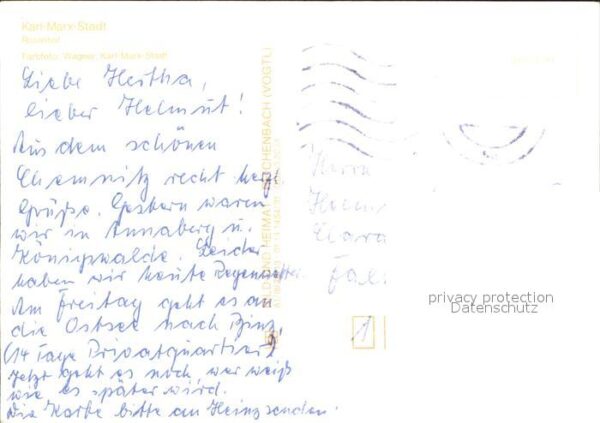 Karl-Marx-Stadt
Rosenhof
Farbfoto: Wagner, Karl-Marx-Stadt
Liebe Hertha,
lieber Helmut!
Aus dem schönen
Chemnitz recht herzl.
Grüße. Gestern waren
wir in Annaberg u.
Königswalde. Leider
haben wir heute Regenwetter.
Am Freitag geht es an
die Ostsee nach Binz,
(14 Tage Privatquartier)
Jetzt geht es noch, wer weiß
wie es später wird.
Die Karte bitte an Heinz senden.
BILD UND HEIMAT REICHENBACH (VOGTL)
Herrn
privacy protection
Datenschutz